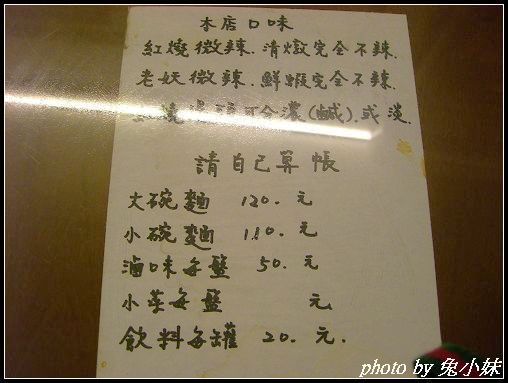 本店口味
紅燒微辣.清燉完全不辣.
老妖微辣.鮮蝦完全不辣.
燒湯頭可分濃(鹹).或淡.
請自己算帳
大碗麵 120.元
小碗麵 110.元
滷味每盤 50.元
小菜每盤 元
飲料每罐 20.元.
photo by 兔小妹